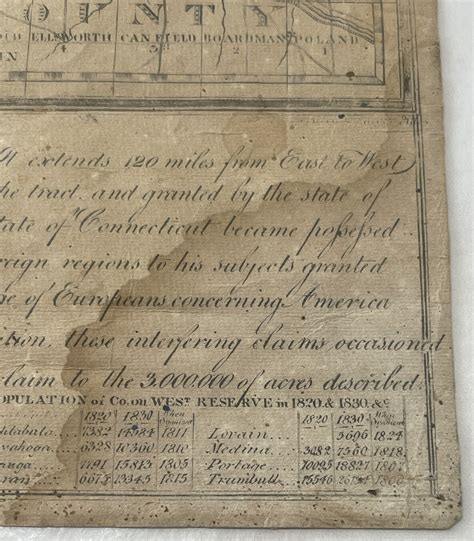 OPNTY
ELLSWORTH CANFIELD BOARDMAN POLAND
It extends 120 miles from East to West
he tract, and granted by the state of
tate of Connecticut became possessed
reign regions to his subjects granted
ge of Europeans concerning America
ition, these interfering claims occasioned
laim to the 3,000,000 of acres described.
OPULATION of Co. on WEST. RESERVE in 1820 & 1830 & c
1820 1830 When Organized 1820 1830 When Organized
htabula 7382 14584 1811 Lorain 5696 1824
yahoga 6328 10360 1810 Medina 3082 7560 1818
auga 7791 15813 1805 Portage 10095 18827 1807
uron 6675 13345 1815 Trumbull 15546 1800